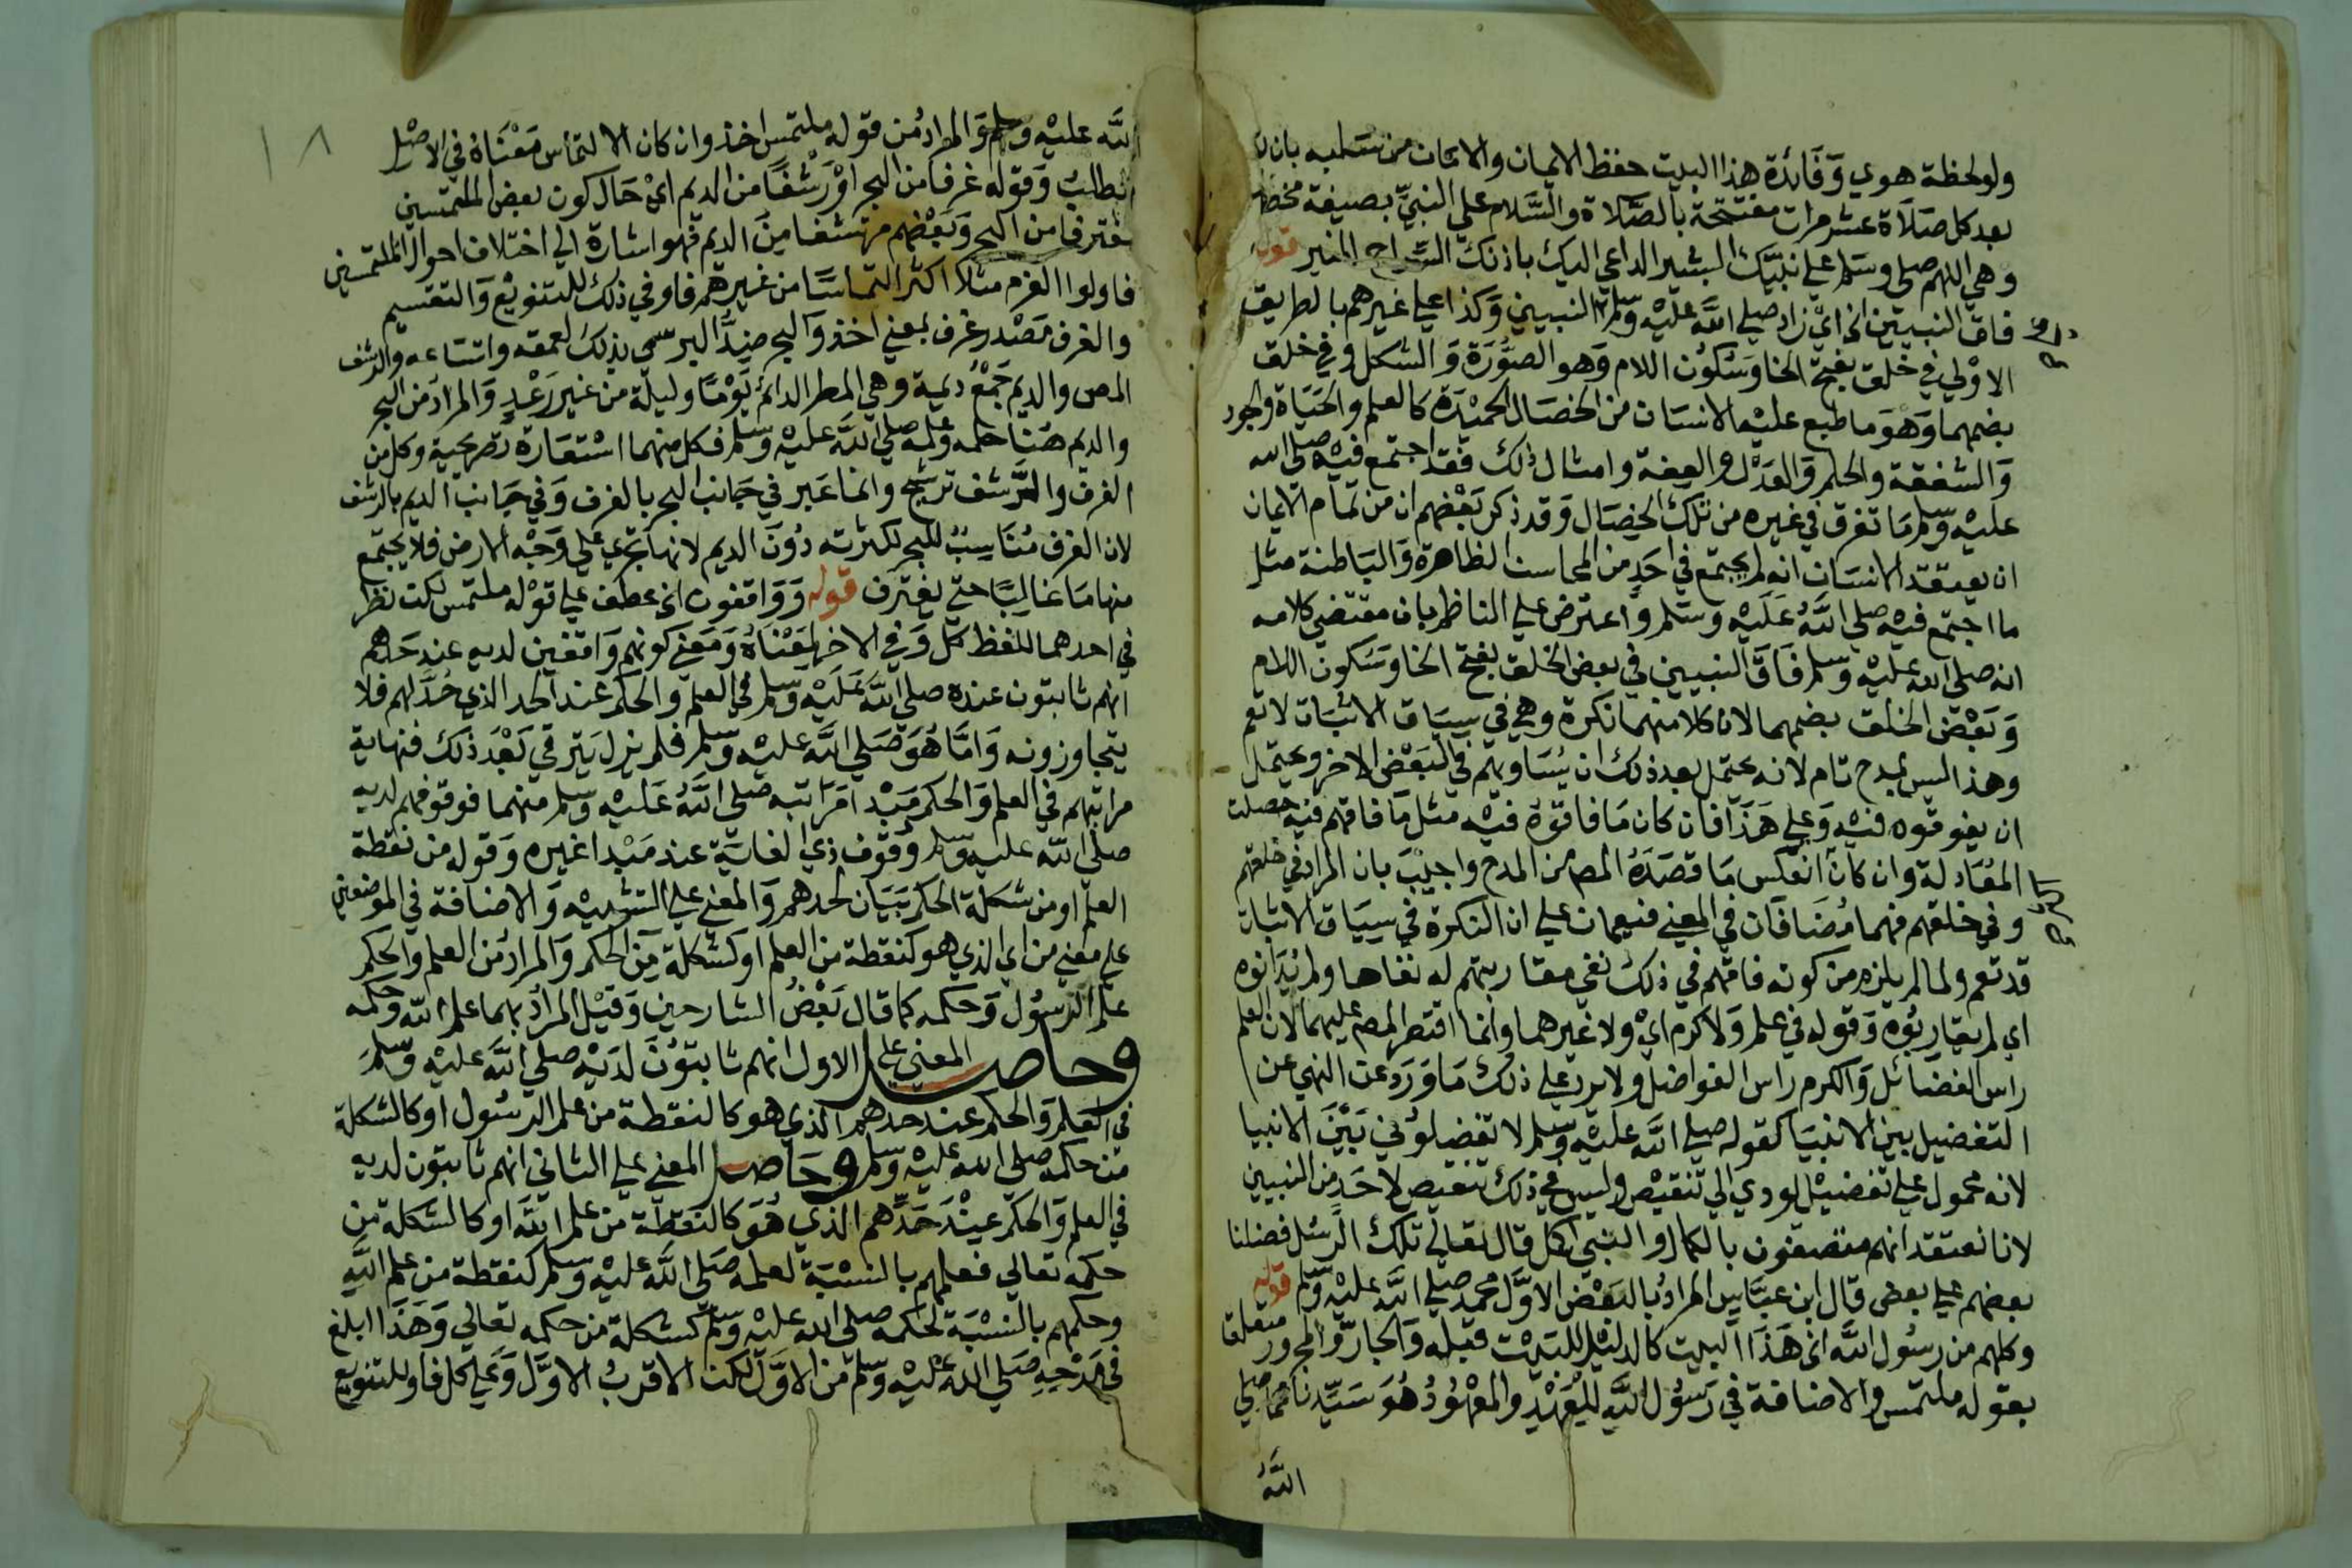 ولو لحظة هوي وَفَائدة هذا البيت حفظ الايمان والامان من سَلبه بان
بعد كل صَلَاة عشر مرات مفتتحة بالصَّلاة والسَّلام علي النبيِّ بصيغة
وهي اللهم صلي وسَلم علي نبيّك البشير الداعي اليك باذنك السِّراج المنير قوله
فاق النبيين الخ ايْ زاد صلي اللَّه عليْه وسَلم النبيين وَكذا علي غيرهم بالطريق
الاوْلي في خلق بفتح الخا وسُكوُن اللام وَهو الصوُّرَة وَالشكل وفي خلق
بضمهما وَهوَ ما طبع عليْه الانسَان من الخصَال الحميْدَة كالعلم والحَيَاة والجود
وَالشفقة والحلم وَالعَدْل والعفة وامثال ذلك فقد اجتمع فيْه صلي الله
عليْه وسَلم مَا تفرق في غيره من تلك الخِصَال وَقد ذكر بَعْضهم ان من تمام الايمان
ان يعتقد الانسَان انه لم يجتمع في احَدٍ من المحاسن الظاهرة وَالبَاطنة مثل
ما اجتمع فيْه صلي اللَّهُ عَلَيْه وَسَلم وَاعترض علي الناظم بان مقتضي كلامه
انه صلي الله عليْه وسَلم فَاقَ النبيين في بعض الخلق بفتح الخا وَسكون اللام
وَبَعْض الخلق بضمهما لان كلا منهما نكرة وهي في سِيَاق الاثبَات لا تعم
وهذا ليسَ بمدح تام لانه يحتمل بعد ذلك ان يُسَاويهم في البَعْض الاخر ويحتمل
ان يفوقوه فيْه وَعلي هَذَا فان كان مَا فاقوُهُ فيْه مثل مَا فاقهم فيْه حصلت
المعَادلة وان كان انعَكس مَا قصَدَهُ المص من المدح واجيْبَ بان المراد في خلقهم
وفي خلقهم فهما مُضَافَان في المعني فيعمان علي ان النكرة في سِيَاق الاثبات
قد تعم ولما لم يلزم من كونه فاقهم في ذلك نفي مقاربتهم له نفاها ولم يُدَانوه
اي لم يقاربُوه وَقوله في علم وَلا كرم ايْ ولا غيرهما وانما اقتصر المص عليهما لان العلم
راس الفضَائل وَالكرم راس الفواضل ولا يرد علي ذلك مَا وَرَد عن النهي عن
التفضيل بين الانبيَا كقوله صلي اللَّه عليْه وسَلم لا تفضلوُني بَيْنَ الانبيا
لانه محمول علي تفضيْل يودي الي تنقيْص وليس في ذلك تنقيص لاحَدٍ من النبيين
لانا نعتقد انهم متصفون بالكمال والنبي اكل قال تعالي تلك الرُّسُل فضلنا
بعضهم علي بعض قال ابن عبَّاس المرادُ بالبَعْض الاوَّل محمد صلي اللَّه عليْه وسَلم قوله
وكلهم من رسُول اللَّه الخ هَذَا البيت كالدليْل للبَيْت قبله وَالجارّ والمجرور متعلق
بقوله ملتمس والاضافة في رَسُول اللَّه للعَهْد والمعْهوُدُ هُوَ سَيِّدنا محمد صلي
اللَّهُ
اللَّه عليْه وسلم وَالمرادُ من قوله ملتمس اخذ وان كان الالتماس مَعْنَاهُ في الاصْل
الطلبُ وَقوله غرفا من البحر اوْ رَشْفًا من الديم ايْ حَال كون بعض الملتمسين
مغترفا من البحر وَبَعْضهم مرتشفا مِنَ الديم فهو اشارة الي اختلاف احوال الملتمسين
فاولوا العزم مثلا اكثر التماسًا من غيرهم فاو في ذلك للتنويْع وَالتقسيم
والغرف مَصْدر غرف بمعني اخذ وَالبحر ضِدُّ البر سمي بذلك لعمقه واتسَاعه والرشف
المص والديم جَمْعُ ديمة وهي المطر الدائم يَوْمًا وليلة من غير رَعْدٍ وَالمرادُ من البحر
والديم هُنَا حلمه وعلمه صلي اللَّه عليْه وسَلم فكل منهما اسْتعَارة تصريحية وكل من
الغرف والرَّشف ترشيح وانما عَبر في جَانب البحر بالغرف وَفي جَانب الديم بالرشف
لان الغرف مُنَاسِبٌ للبحر لكثرته دُونَ الديم لانها تجري علي وَجْه الارض فلا يجتمع
منها مَا غالبًا حتي يغترف قوله وَوَاقفون الخ عطف علي قوْله ملتمس لكن نظر
في احدهما للفظ كل وَفي الاخر لمَعْنَاهُ وَمَعني كونهم وَاقفين لديه عند حَدهم
انهم ثابتون عنده صلي اللَّهُ عَلَيْه وسَلم في العلم والحكم عند الحد الذي حُدَّ لهم فلا
يتجاوزونه وَامَّا هُوَ صَلي اللَّه عليْه وسَلم فلم يزل يَترقي بَعْدَ ذلك فنهاية
مراتبهم في العلم وَالحكم مَبْدا مَرَاتبه صلي اللَّهُ عَلَيْه وسَلم منهما فوقوفهم لديه
صلي اللّه عليْه وسَلم وُقوُف ذي الغايَة عند مَبْدا غيره وَقوله من نقطة
العلم او من شكلة الحكم بَيَان لحدهم وَالمعني علي التشبيْه وَالاضافة في الموضعين
علي معْني من اي الذي هو كنقطة من العلم او كشكلة مِنَ الحكم وَالمرادُ من العلم والحكم
علم الرسُول وَحكمه كما قال بَعْضُ الشارحين وَقيْل المرادُ بهما علم اللّه وحكمه
وحاصل المعني علي الاول انهم ثابتوُنَ لدَيْه صلي اللَّه عليْه وسَلمَ
في العلم وَالحكم عند حدهم الذي هو كالنقطة من علم الرسُول او كالشكلة
من حكمه صلي الله عليْه وسلم وحَاصل المعني علي الثاني انهم ثابتون لديه
في العلم وَالحكم عِنْدَ حَدِّهم الذي هُوَ كالنقطة من علم اللَّه او كالشكلة من
حكمه تعالي فعلمهم بالنسْبَة لعلمه صَلي اللَّه عليْه وسَلم كنقطة من علم اللَّه
وحكمهم بالنسْبَة لحكمه صلي الله عليْه وَسَلم كشكلة من حكمه تعالي وَهَذَا ابلغ
في مَدْحِهِ صَلي الله عليْه وسَلم من الاوَّل لكن الاقربُ الاوَّل وَعلي كل فاو للتنويع